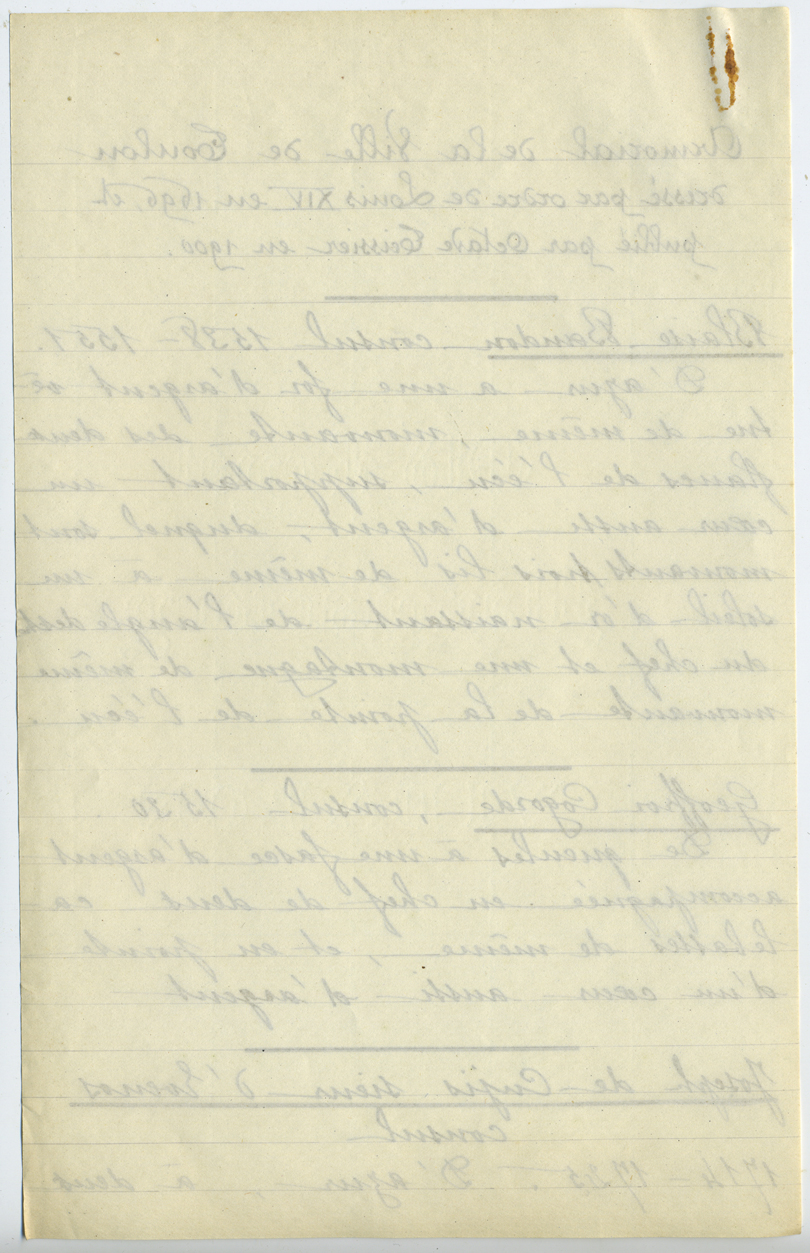 Armorial de la Ville de Toulon
dressé par ordre de Louis XIV en 1696, et
publié par Octave Teissier en 1900.
Blaise Baudon consul 1538 - 1551.
D'azur a une for d'argent vê
tue de même, mouvante des deux
flancs de l'écu, supportant un
cœur aussi d'argent, duquel sont
mouvants trois lis de même à un
soleil d'or naissant de l'angle dext
du chef et une montagne de même
mouvante de la pointe de l'écu.
Geoffroi Cogorde, consul 1590
De gueules à une fasce d'argent
accompagnée en chef de deux ca
lebasses de même, et en pointe
d'un cœur aussi d'argent
Joseph de Cujis sieur d'Evenos
consul
1714 - 1725. D'azur à deux